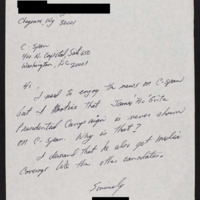 Cheyenne, Wy 82001
C-Span
400 N. Capitol St.
Washington, DC
20001
Hi
I used to enjoy the news on C-Span
but I that James "Bo" Gritz
Presidential Campaign is never shown
on C-Span. Why is that?
I demand that he also get
Coverage like the other candidates.
Sincerely